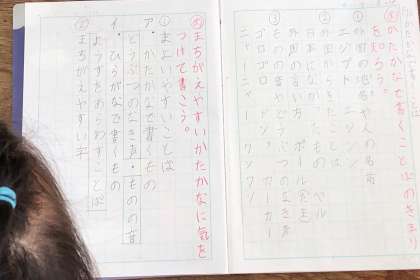 かたかなで書くことばのきまりを知ろう。
① 外国の地名や人の名前
エジプト エジソン
② 外国からきたことば
日本になかったもの ベル
外国の言い方 ボール
③ ものの音やどうぶつのなき声
ゴロゴロ ドン カーカー
ニャーニャー ワンワン
まちがえやすいかたかなに気を
つけて書こう。
① まよいやすいことば
ア・かたかなで書くもの
どうぶつのなき声・ものの音
イ・ひらがなで書くもの
ようすをあらわすことば
② まちがえやすい字